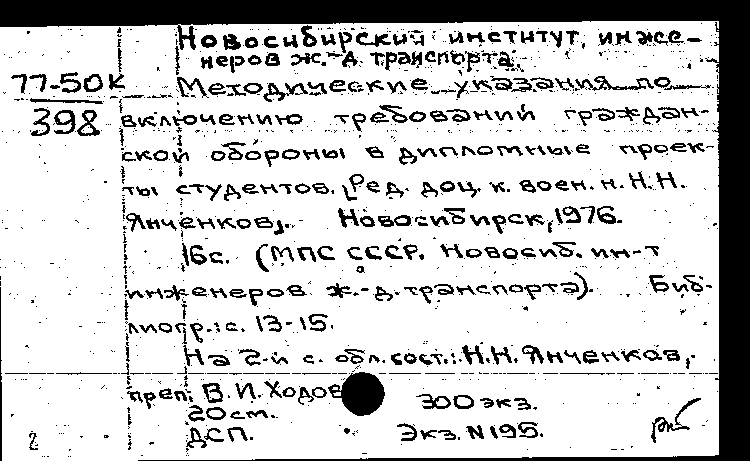 Новосибирский институт, инже-
неров ж.-д. транспорта.
77-50к Методические указания по
398 включению требований граждан-
ской обороны в дипломные проек-
ты студентов. [Ред. доц. к. воен. н. Н.Н.
Янченков]. Новосибирск, 1976.
16с. (МПС СССР. Новосиб. ин-т
инженеров ж.-д. транспорта). Биб-
лиогр.: с. 13-15.
На 2-й с. обл. сост.: Н.Н. Янченков,
преп. В.И. Ходов
20см. 300 экз.
2 ДСП. Экз. N195.